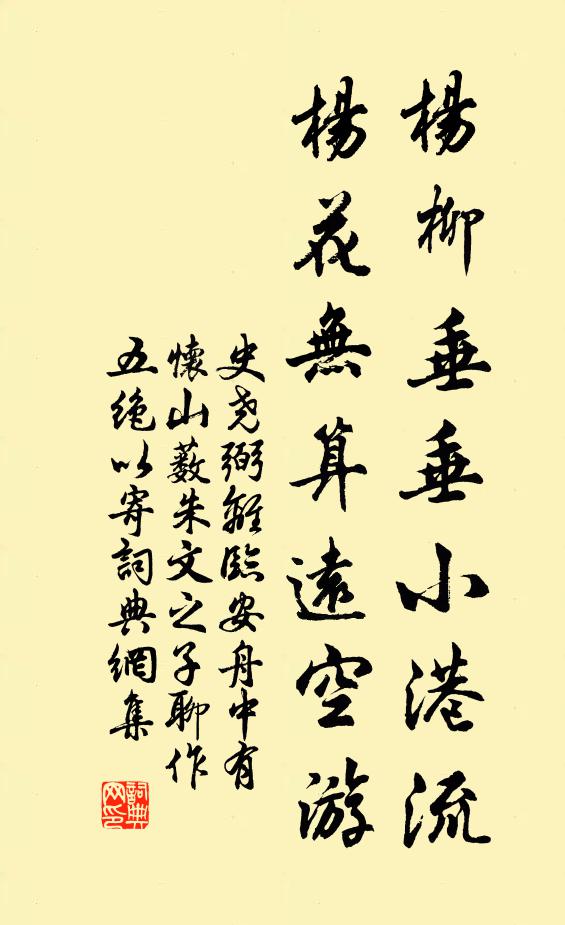 楊柳垂垂小港流
楊花無算遠空游
史尧弼離臨安舟中有
懷山薮朱文之子聊作
五绝以寄詞典網集
詞典网印